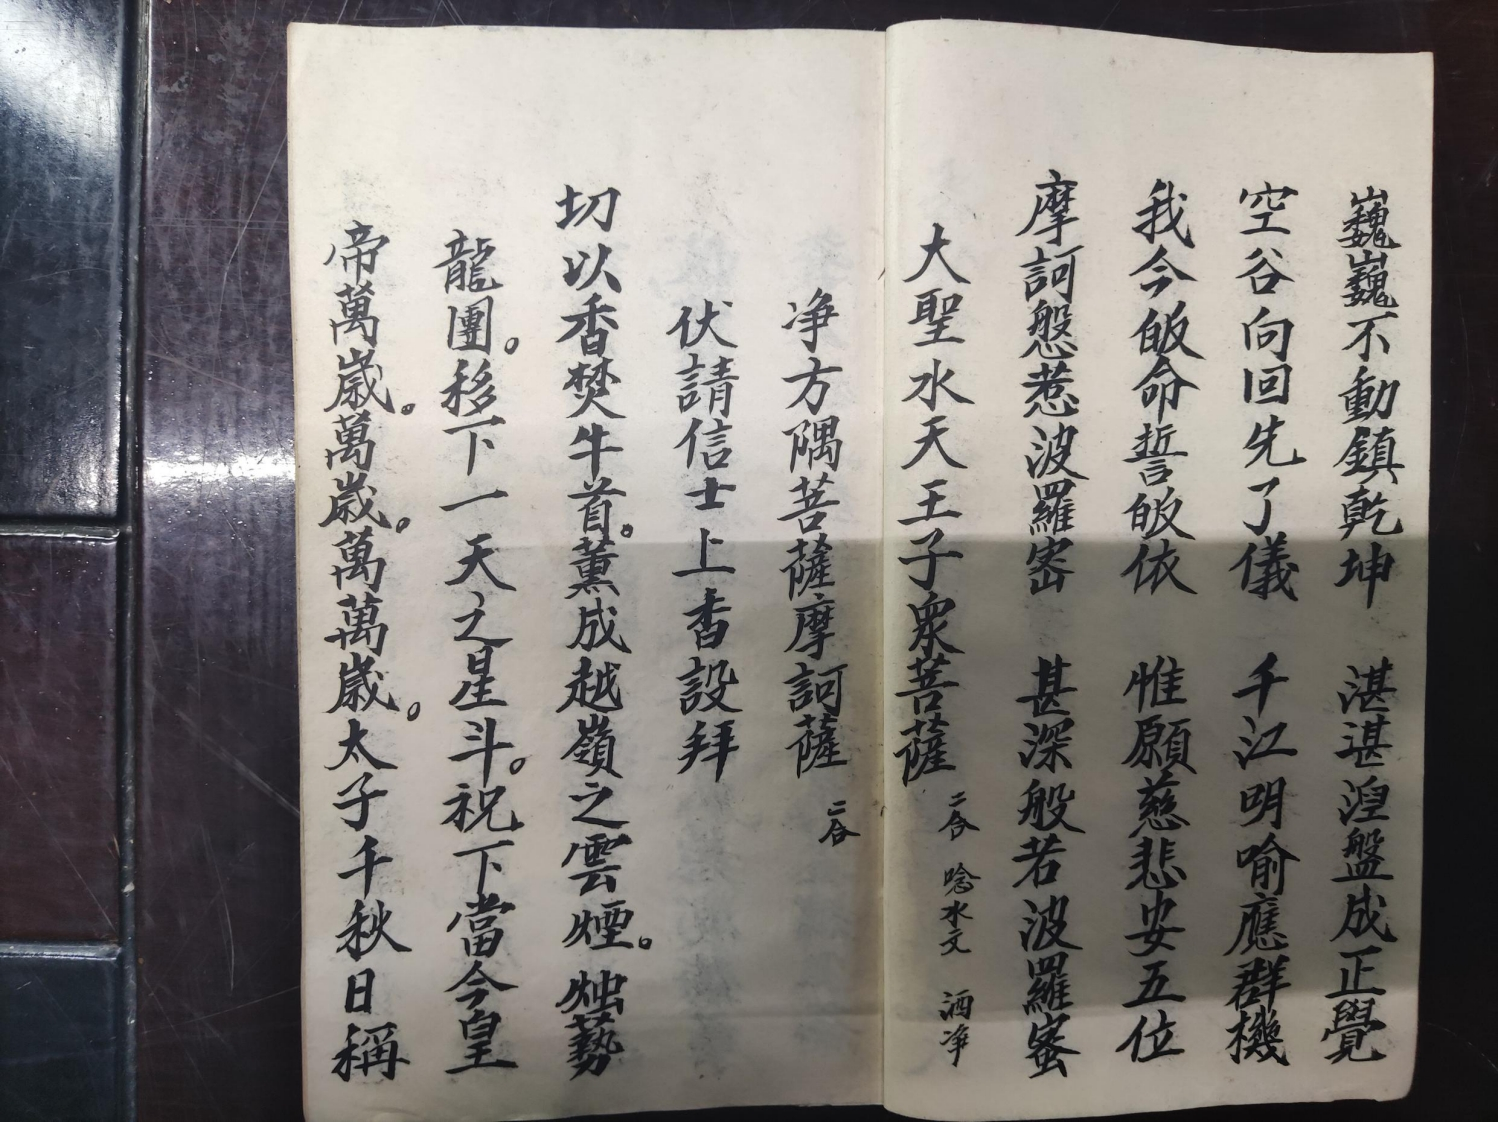 巍巍不動鎮乾坤　湛湛湼盤成正覺
空谷向回先了儀　千江明喻應群機
我今皈命誓皈依　惟願慈悲安五位
摩訶般惹波羅密　甚深般若波羅蜜
大聖水天王子衆菩薩　二合　唸水文　洒净
净方隅菩薩摩訶薩　二合
伏請信士上香設拜
切以香焚牛首。薰成越嶺之雲煙。燭藝
龍團。移下一天之星斗。祝下當今皇
帝萬歲。萬歲。萬萬歲。太子千秋日稱